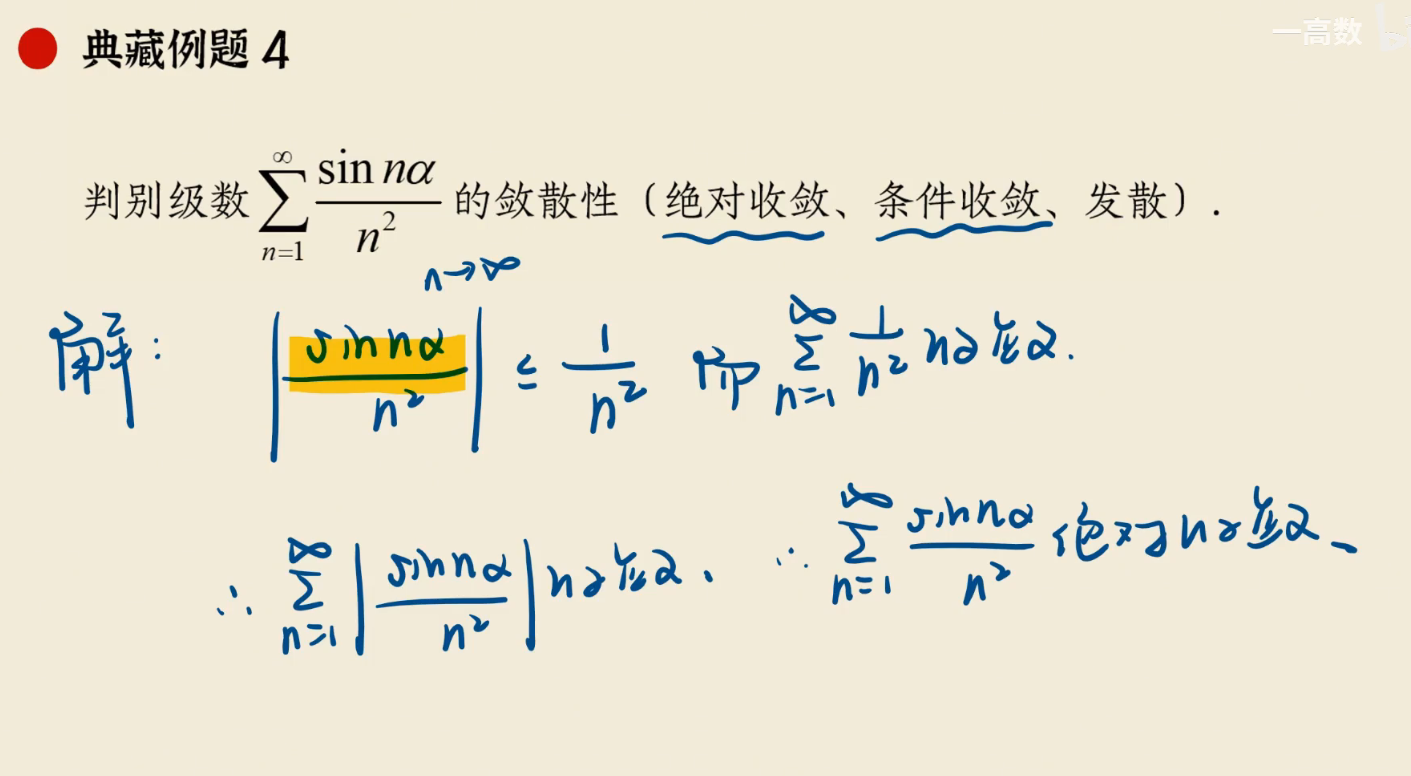 典藏例题 4
一高数
判别级数 $\sum_{n=1}^{\infty} \frac{\sin n\alpha}{n^2}$ 的敛散性（绝对收敛、条件收敛、发散）.
n→∞
解: $\left|\frac{\sin n\alpha}{n^2}\right| \le \frac{1}{n^2}$ 而 $\sum_{n=1}^{\infty} \frac{1}{n^2}$ 收敛.
∴ $\sum_{n=1}^{\infty} \left|\frac{\sin n\alpha}{n^2}\right|$ 收敛. ∴ $\sum_{n=1}^{\infty} \frac{\sin n\alpha}{n^2}$ 绝对收敛.